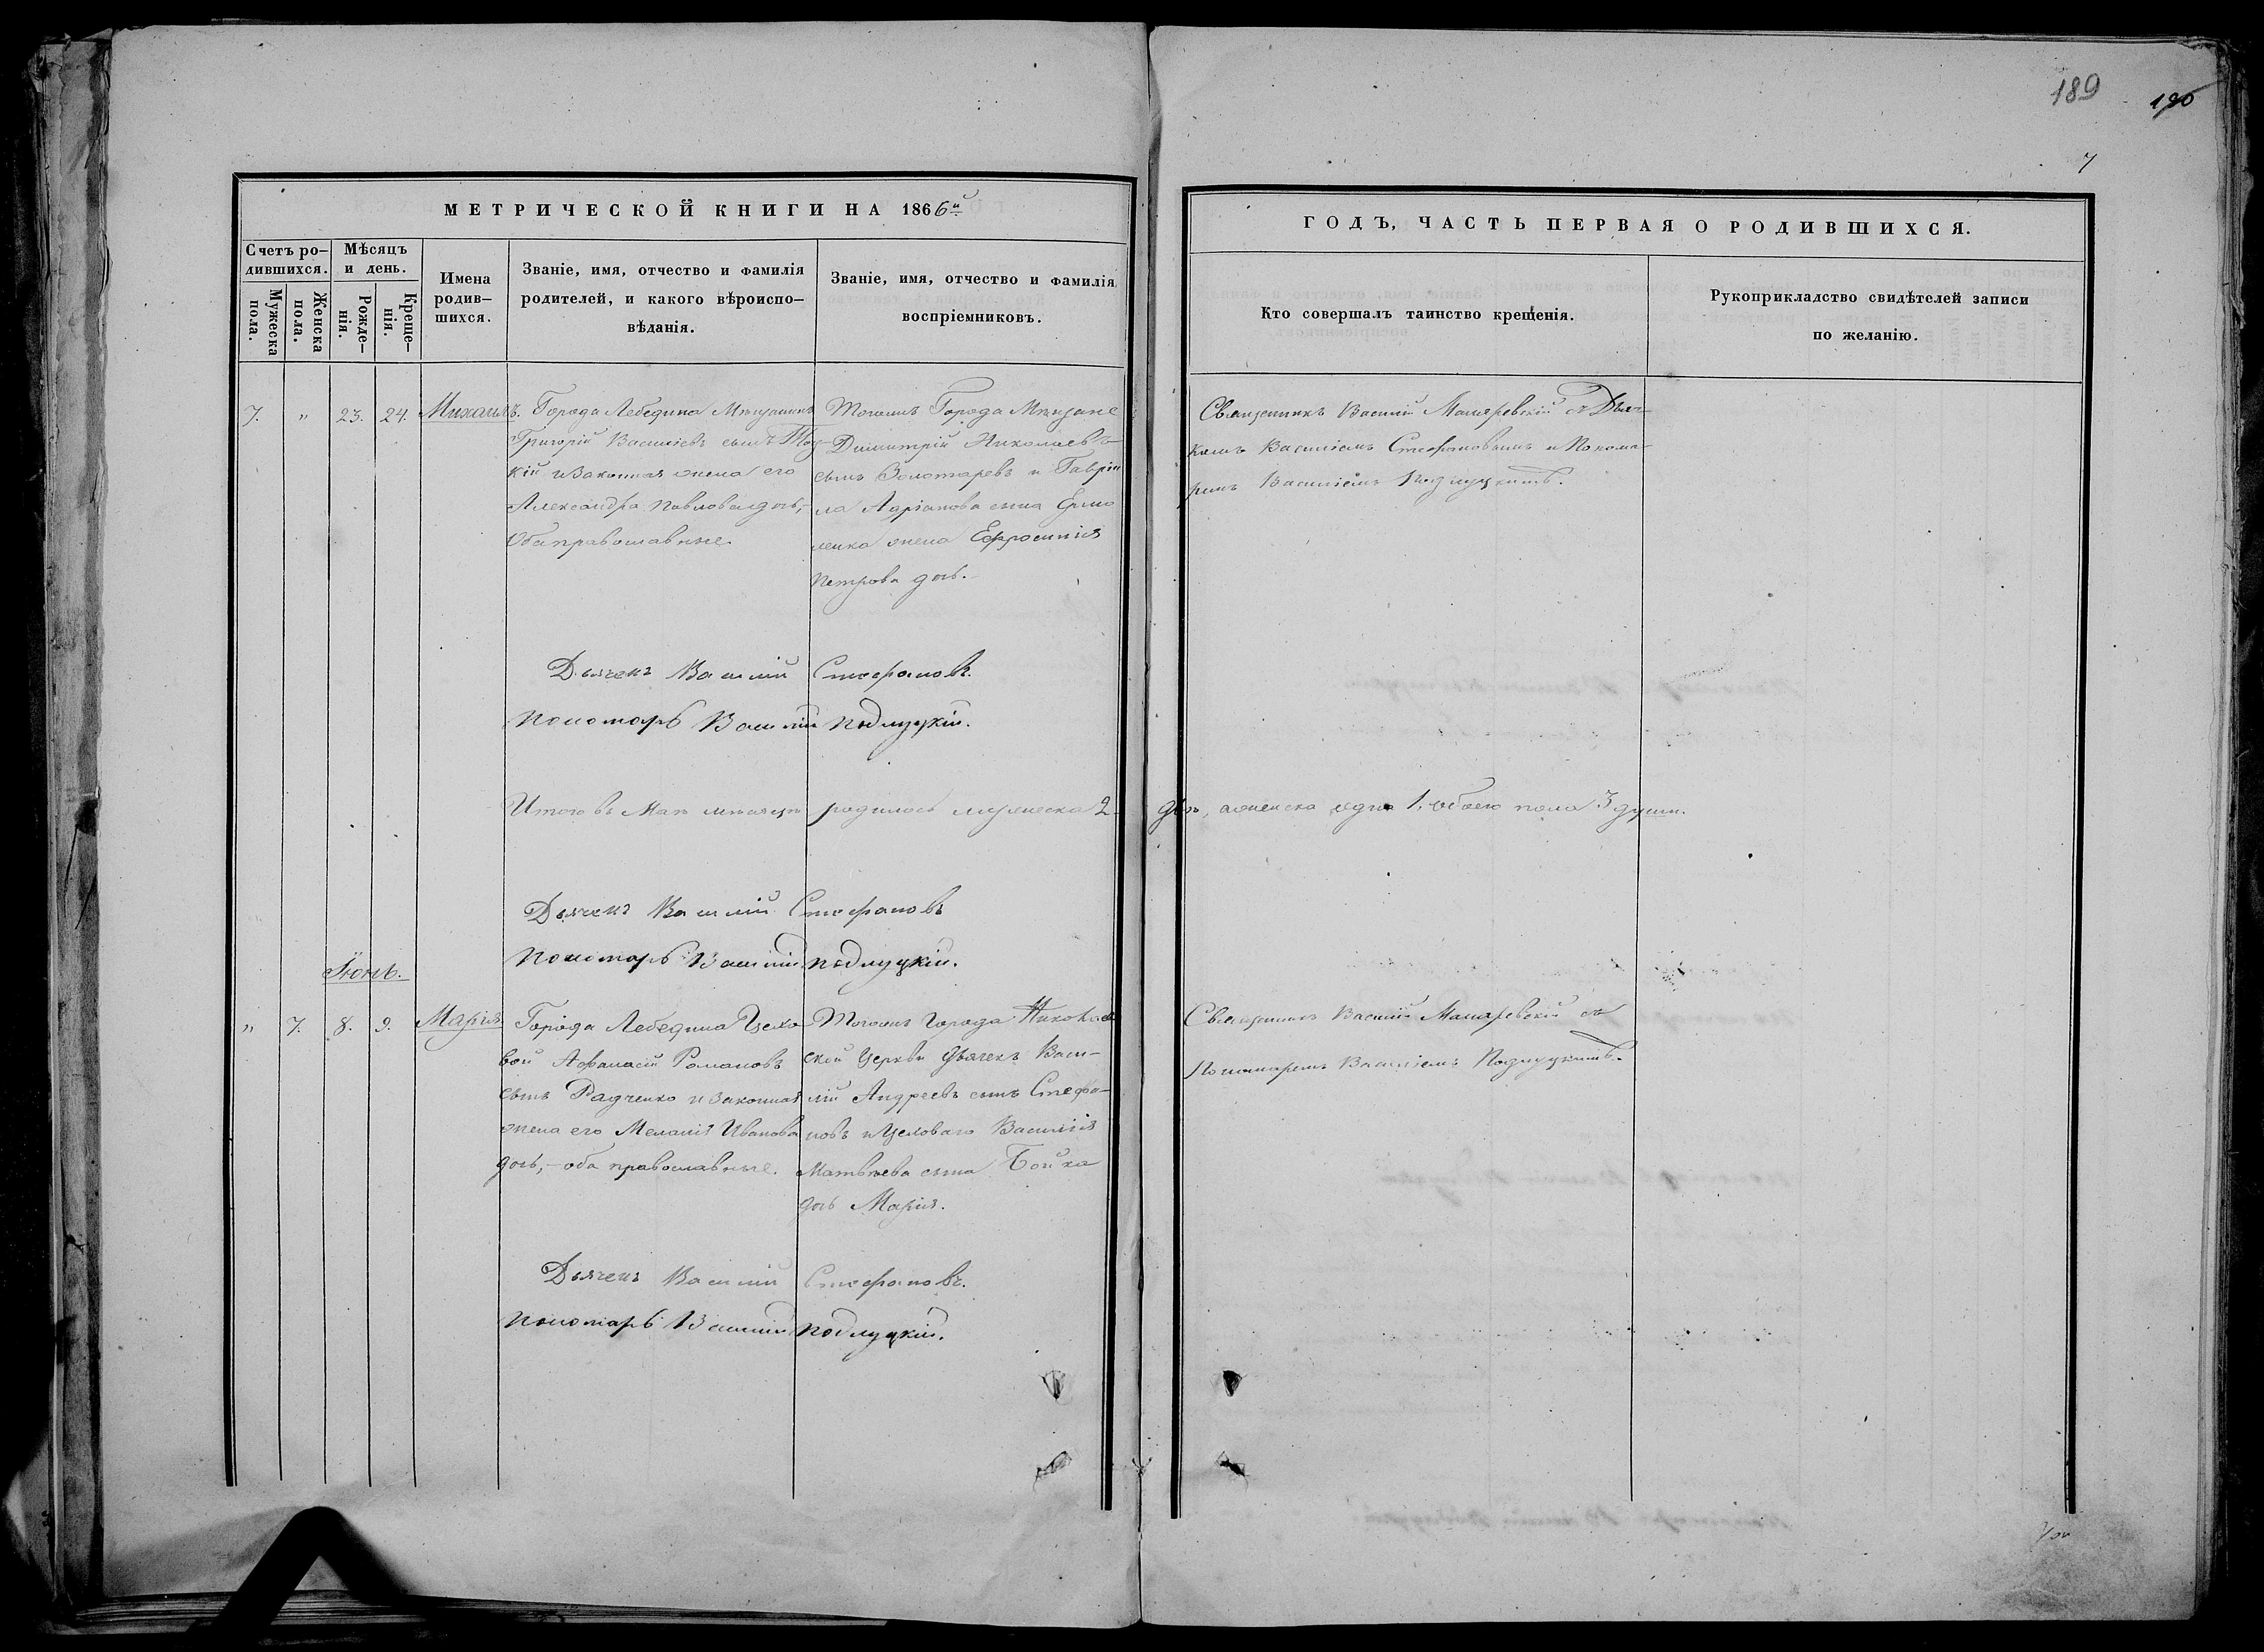 189
190
7
МЕТРИЧЕСКОЙ КНИГИ НА 1866й
ГОДЪ, ЧАСТЬ ПЕРВАЯ О РОДИВШИХСЯ.
Счетъ ро-
дившихся.
Мѣсяцъ
и день.
Мужеска
пола.
Женска
пола.
Рожде-
нія.
Креще-
нія.
Имена
родив-
шихся.
Званіе, имя, отчество и фамилія
родителей, и какого вѣроиспо-
вѣданія.
Званіе, имя, отчество и фамилія
воспріемниковъ.
Кто совершалъ таинство крещенія.
Рукоприкладство свидѣтелей записи
по желанію.
7. " 23. 24. Михаилъ.
Города Лебедина Мѣщанинъ
Григорій Василіевъ сынъ
кій и Законная жена его
Александра Павлова дочь,
Оба православные.
Тогожъ Города Мѣщане
Димитрій Николаевъ
сынъ Золотаревъ и Гаврі
ла Адріанова сына Ермо
ленка жена Ефросинія
Петрова дочь.
Священникъ Василій Макаревскій съ Дьяч-
комъ Василіемъ Стефановымъ и Понома-
ремъ Василіемъ Подлуцкимъ.
Дьячекъ Василій Стефановъ.
Пономарь Василій Подлуцкій.
Итого въ Маѣ мѣсяцѣ родилось мужеска 2 два, женска одна 1, обоего пола 3 души.
Дьячекъ Василій Стефановъ
Пономарь Василій Подлуцкій.
Іюнь.
" 7. 8. 9. Марія
Города Лебедина Цехо
вой Афанасій Романовъ
сынъ Радченко и законная
жена его Меланія Иванова
дочь, - оба православные.
Тогожъ города Николаев
ской Церкви Дьячекъ Васи-
лій Андреевъ сынъ Стефа-
новъ и Цеховаго Василія
Матвѣева сына Бойка
дочь Марія.
Священникъ Василій Макаревскій съ
Пономаремъ Василіемъ Подлуцкимъ.
Дьячекъ Василій Стефановъ.
Пономарь Василій Подлуцкій.